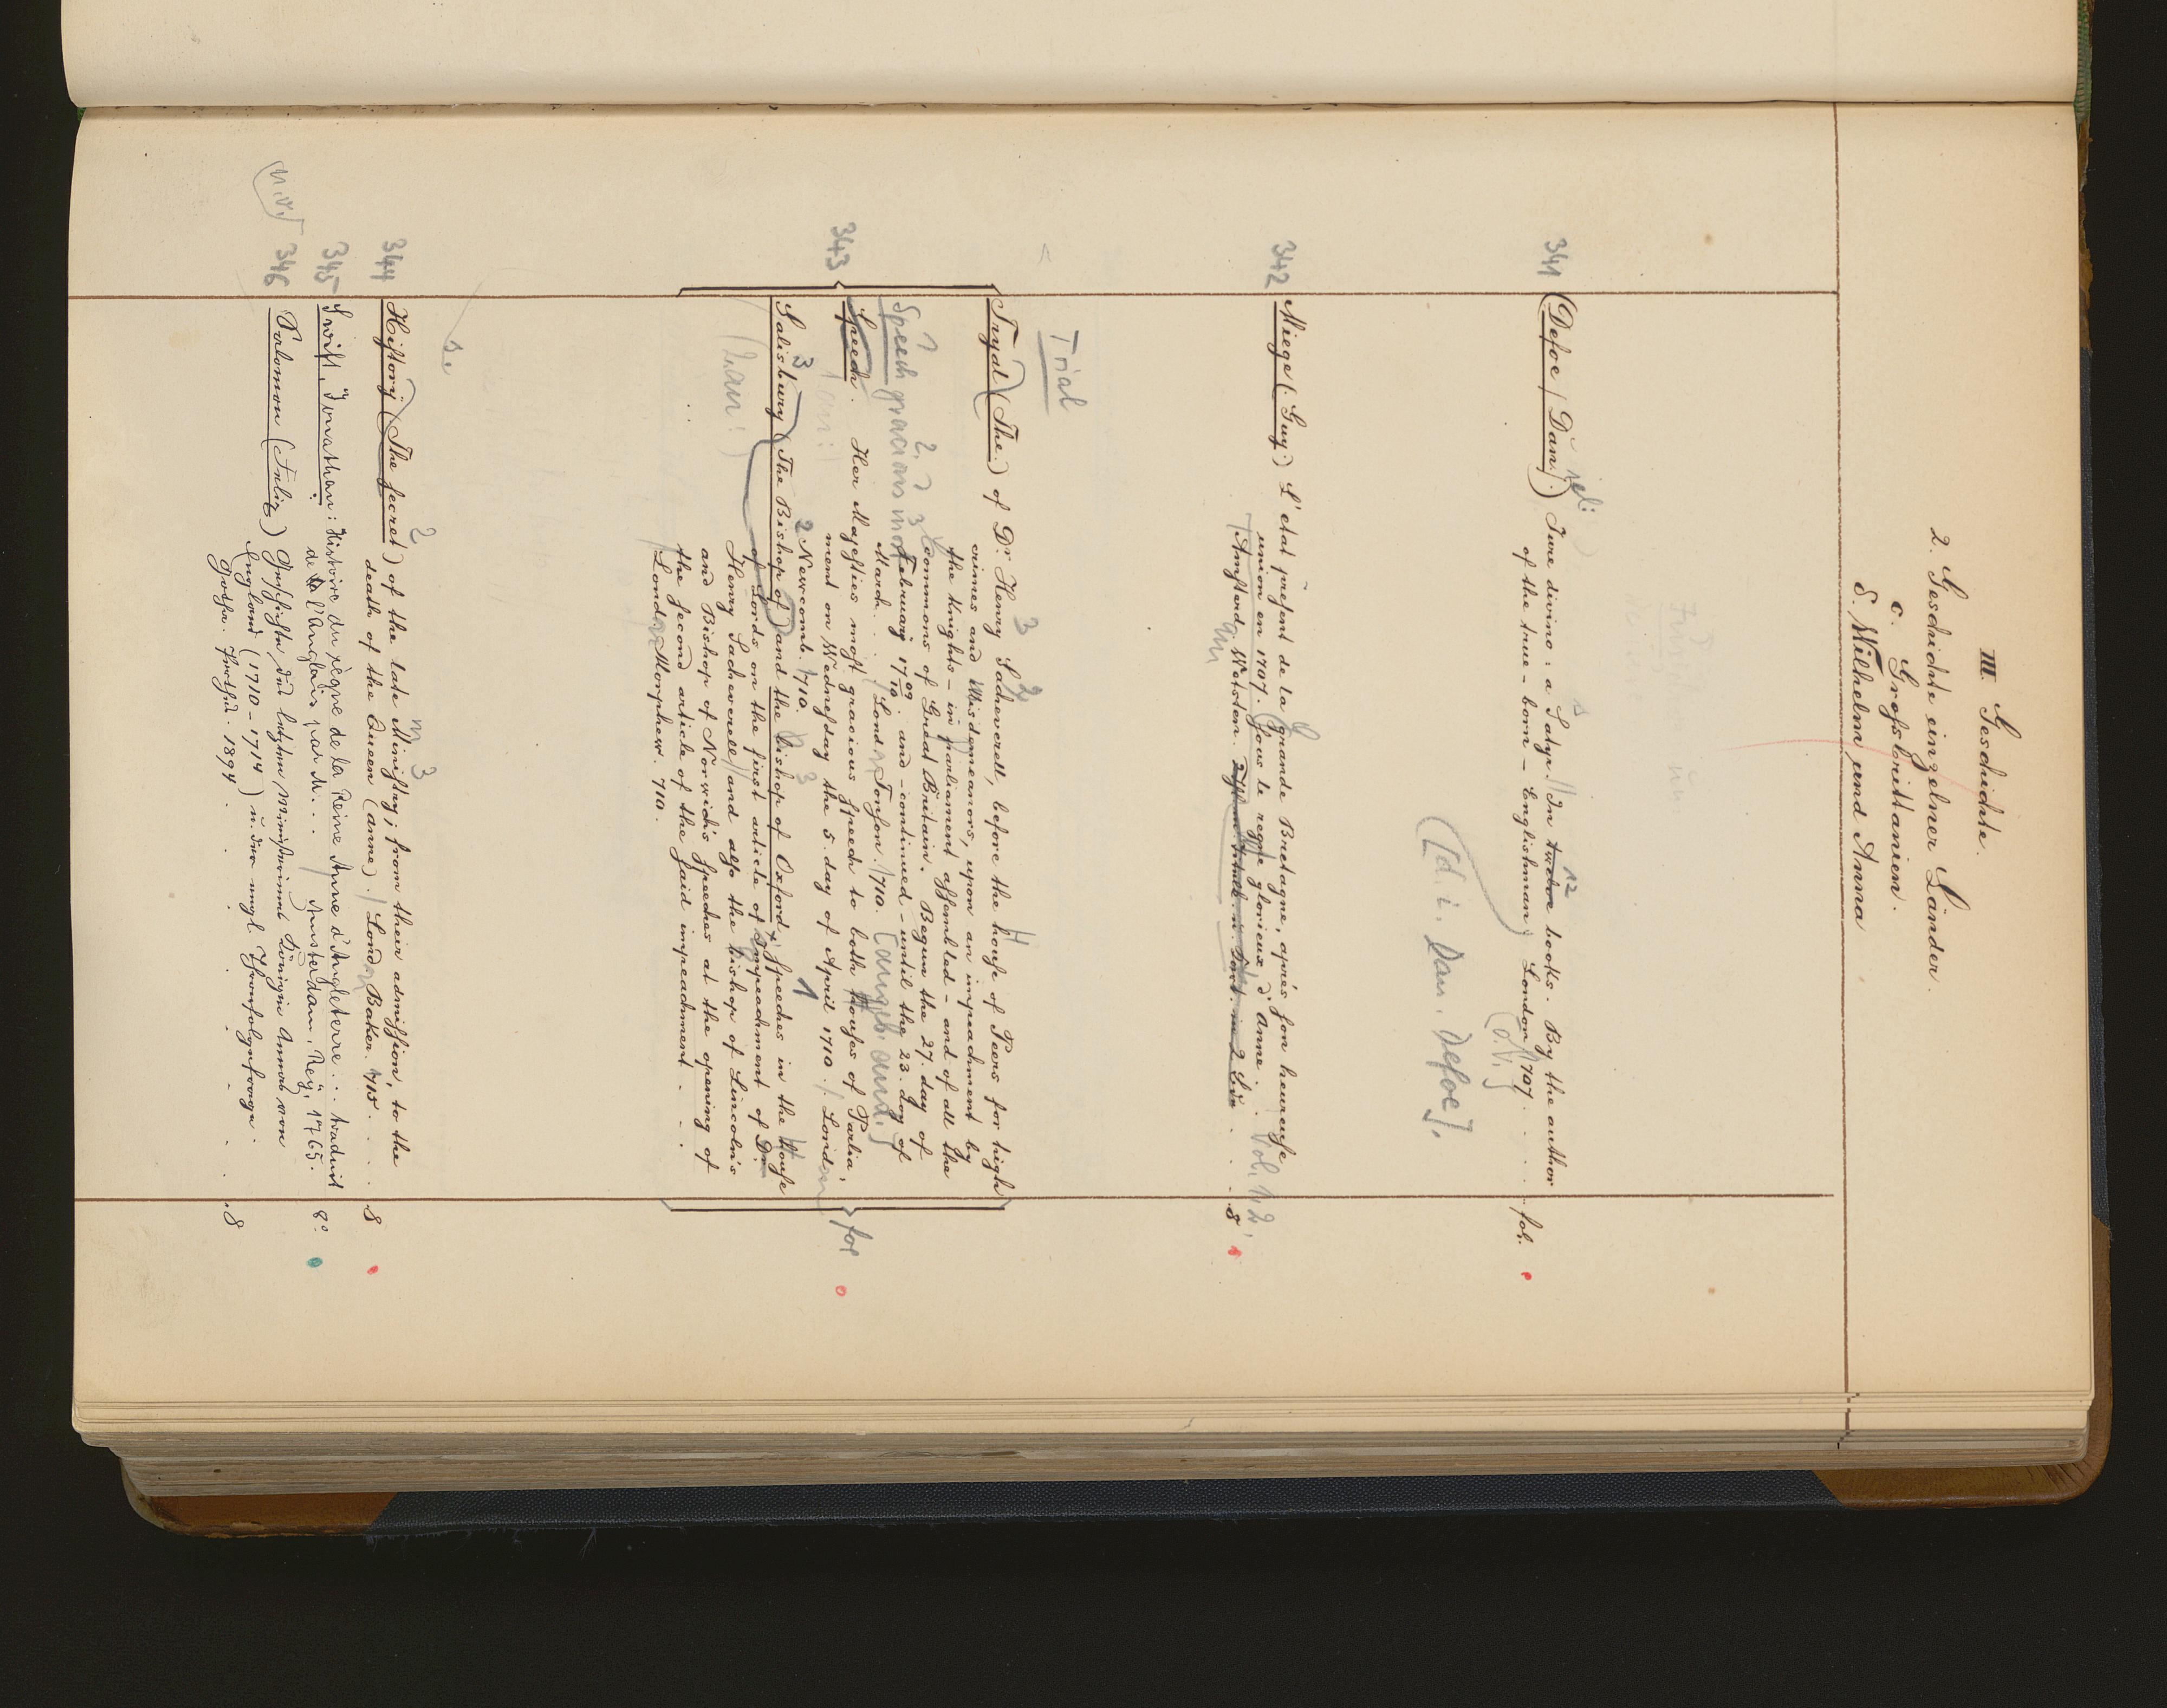 III. Geschichte.
2. Geschichte einzelner Länder.
c. Grossbrittanien.
δ. Wilhelm und Anna
341 (Defoe / Dan.) Jure divino: a Satyr. // In twelve 12 books. By the author
of the true-born-Englishman) London / 707. . . . fol.
[d. i. Dan. Defoe].
342 Miege (Guy.) L'etat présent de la grande Bretagne, aprés son heureuse
union en 1707. sous le regne glorieux d'Anne. . Vol. 1. 2.
Amsterd. Wetstein. . . . 8
Trial
343 Tryal (The) of Dr. Henry Sacheverell, before the house of Peers for high
crimes and Misdemeanors, upon an impeachment by
the Knights - in parliament assembled - and of all the
commons of Great Britain. Begun the 27. day of
February 17 09/10. and - continued - until the 23. day of
March . . / London Tonson. / 710. [angeb. sind:]
Speech gracious most
Speech. Her Majesties most gracious speech to both Houses of Parlia-
ment on Wednesday the 5. day of April 1710. / London
Newcomb. 1710. fol
Salisbury (The Bishop of) and the Bishop of Oxford Speeches in the house
of Lords on the first article of Impeachment of Dr.
Henry Sacheverell // and also the bishop of Lincoln's
and Bishop of Norwich's speeches at the opening of
the second article of the said impeachment . . .
London Morphew. 710.
s.
344 History (The secret) of the late Ministry; from their admission, to the
death of the Queen (anne). / London Baker. 715. . . . 8
345 Swift, Jonathan: Histoire du règne de la Reine Anne d'Angleterre . . traduit
de l'Anglais par M. . . / Amsterdam, Rey, 1765. 8°
346 Salomon (Felix) Geschichte des letzten Ministeriums Königin Annas von
England (1710-1714) u. der engl. Thronfolgefrage.
Gotha. Perthes. 1894. . . . 8